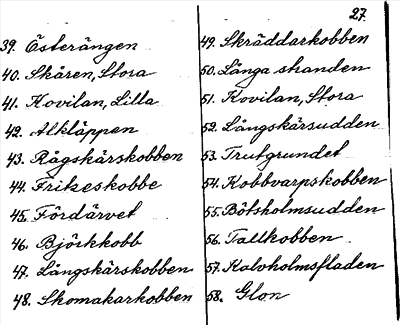 27.
39. Österängen
40. Skåren, Stora
41. Kovilan, Lilla
42. Alkläppen
43. Rågskärskobben
44. Fritzeskobbe
45. Fördärvet
46. Björkkobb
47. Långskärskobben
48. Skomakarkobben
49. Skräddarkobben
50. Långa stranden
51. Kovilan, Stora
52. Långskärsudden
53. Trutgrundet
54. Kobbvarpskobben
55. Båtsholmsudden
56. Tallkobben
57. Kalvholmsfladen
58. Glon